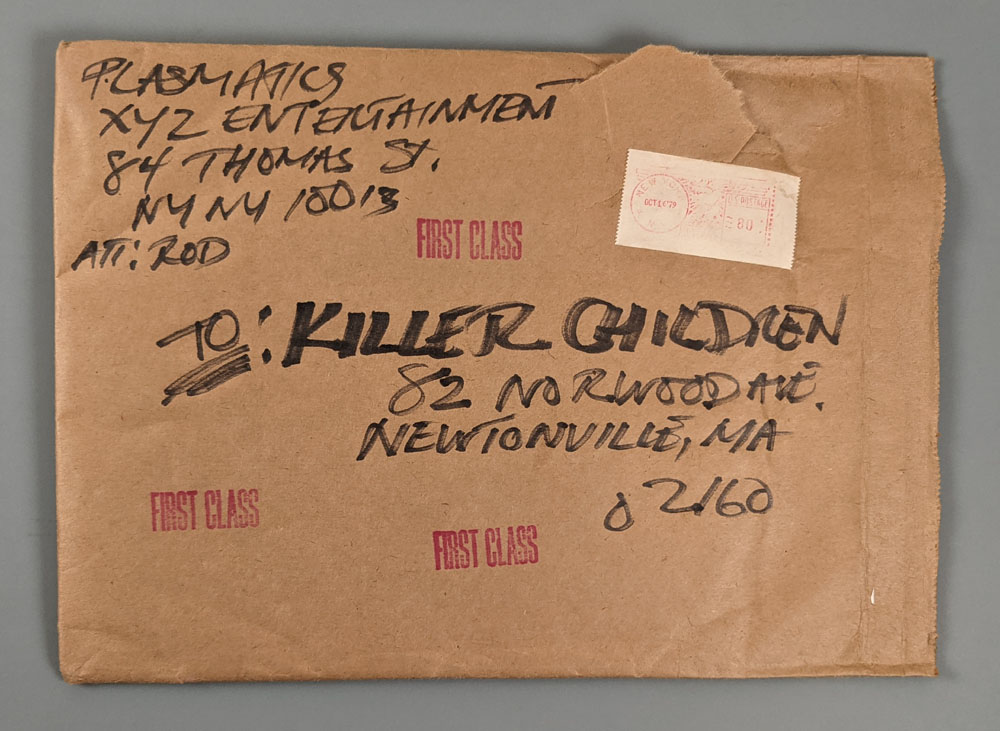 PLASMATICS
XYZ ENTERTAINMENT
84 THOMAS St.
NY NY 10013
ATT: ROD
FIRST CLASS
NEW YORK
OCT 1 '79
U.S. POSTAGE
80
TO: KILLER CHILDREN
82 NORWOOD AVE.
NEWTONVILLE, MA
02160
FIRST CLASS
FIRST CLASS